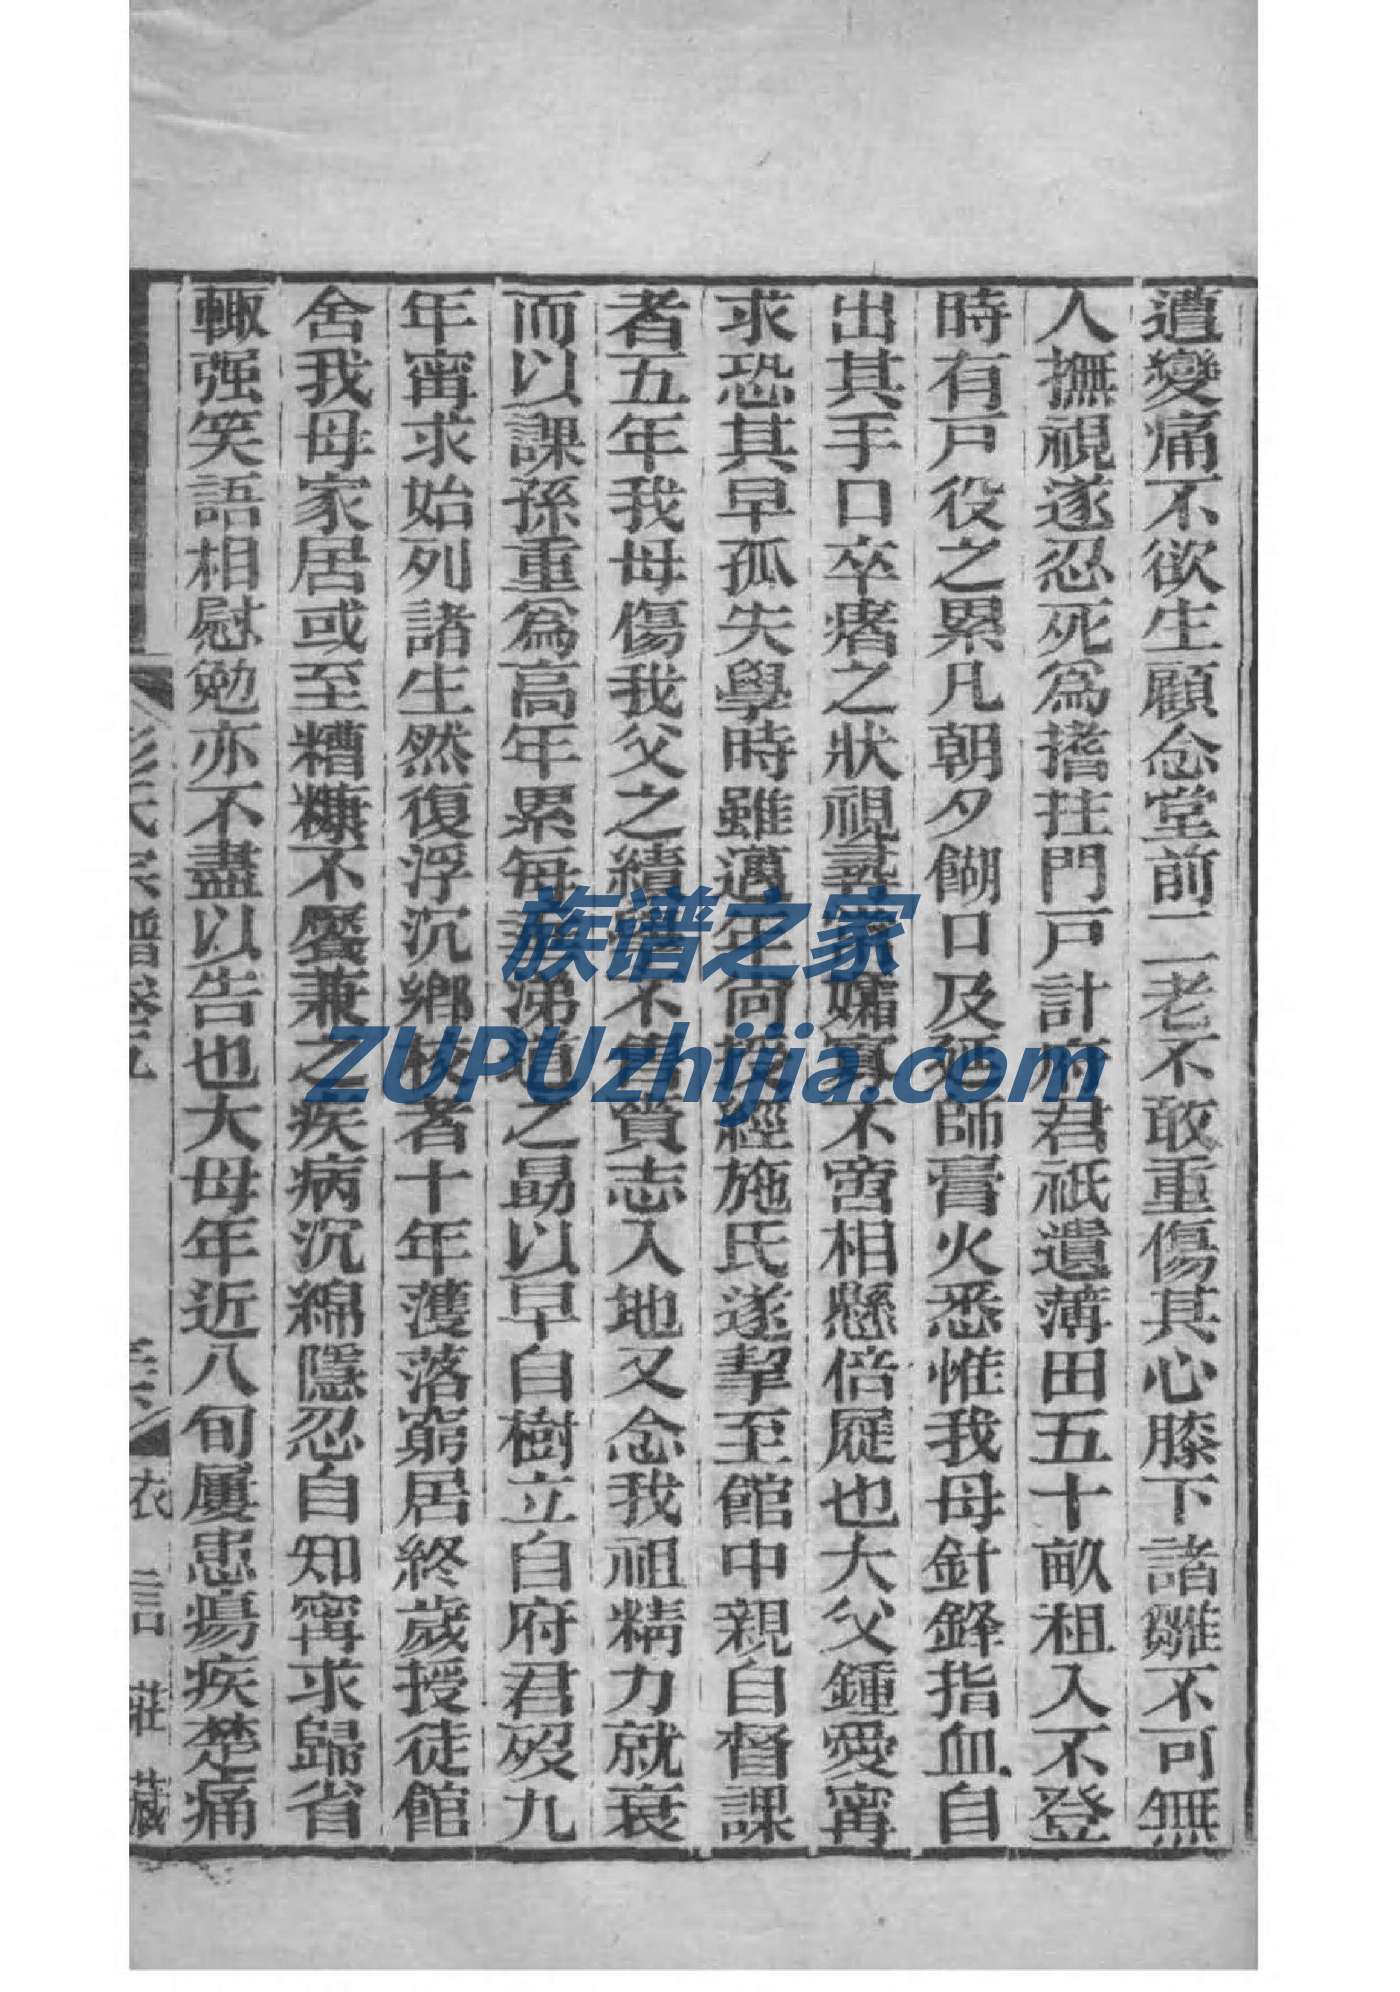 遭變痛不欲生顧念堂前二老不敢重傷其心膝下諸雛不可無
人撫視遂忍死爲搘拄門戸計府君祇遺薄田五十畝租入不登
時有戸役之累凡朝夕餬口及延師膏火悉惟我母針鋒指血自
出其手口卒瘏之狀視尋常孀寡不啻相懸倍屣也大父鍾愛甯
求恐其早孤失學時雖邁年尙授經施氏遂挈至館中親自督課
者五年我母傷我父之績學不售賫志入地又念我祖精力就衰
而以課孫重爲高年累每垂涕道之勗以早自樹立自府君歿九
年甯求始列諸生然復浮沉鄉校者十年濩落窮居終歲授徒館
舍我母家居或至糟糠不饜兼之疾病沉綿隱忍自知甯求歸省
輙强笑語相慰勉亦不盡以告也大母年近八旬屢患瘍疾楚痛
彭氏宗譜卷九
衣言莊藏
族谱之家
ZUPUzhijia.com